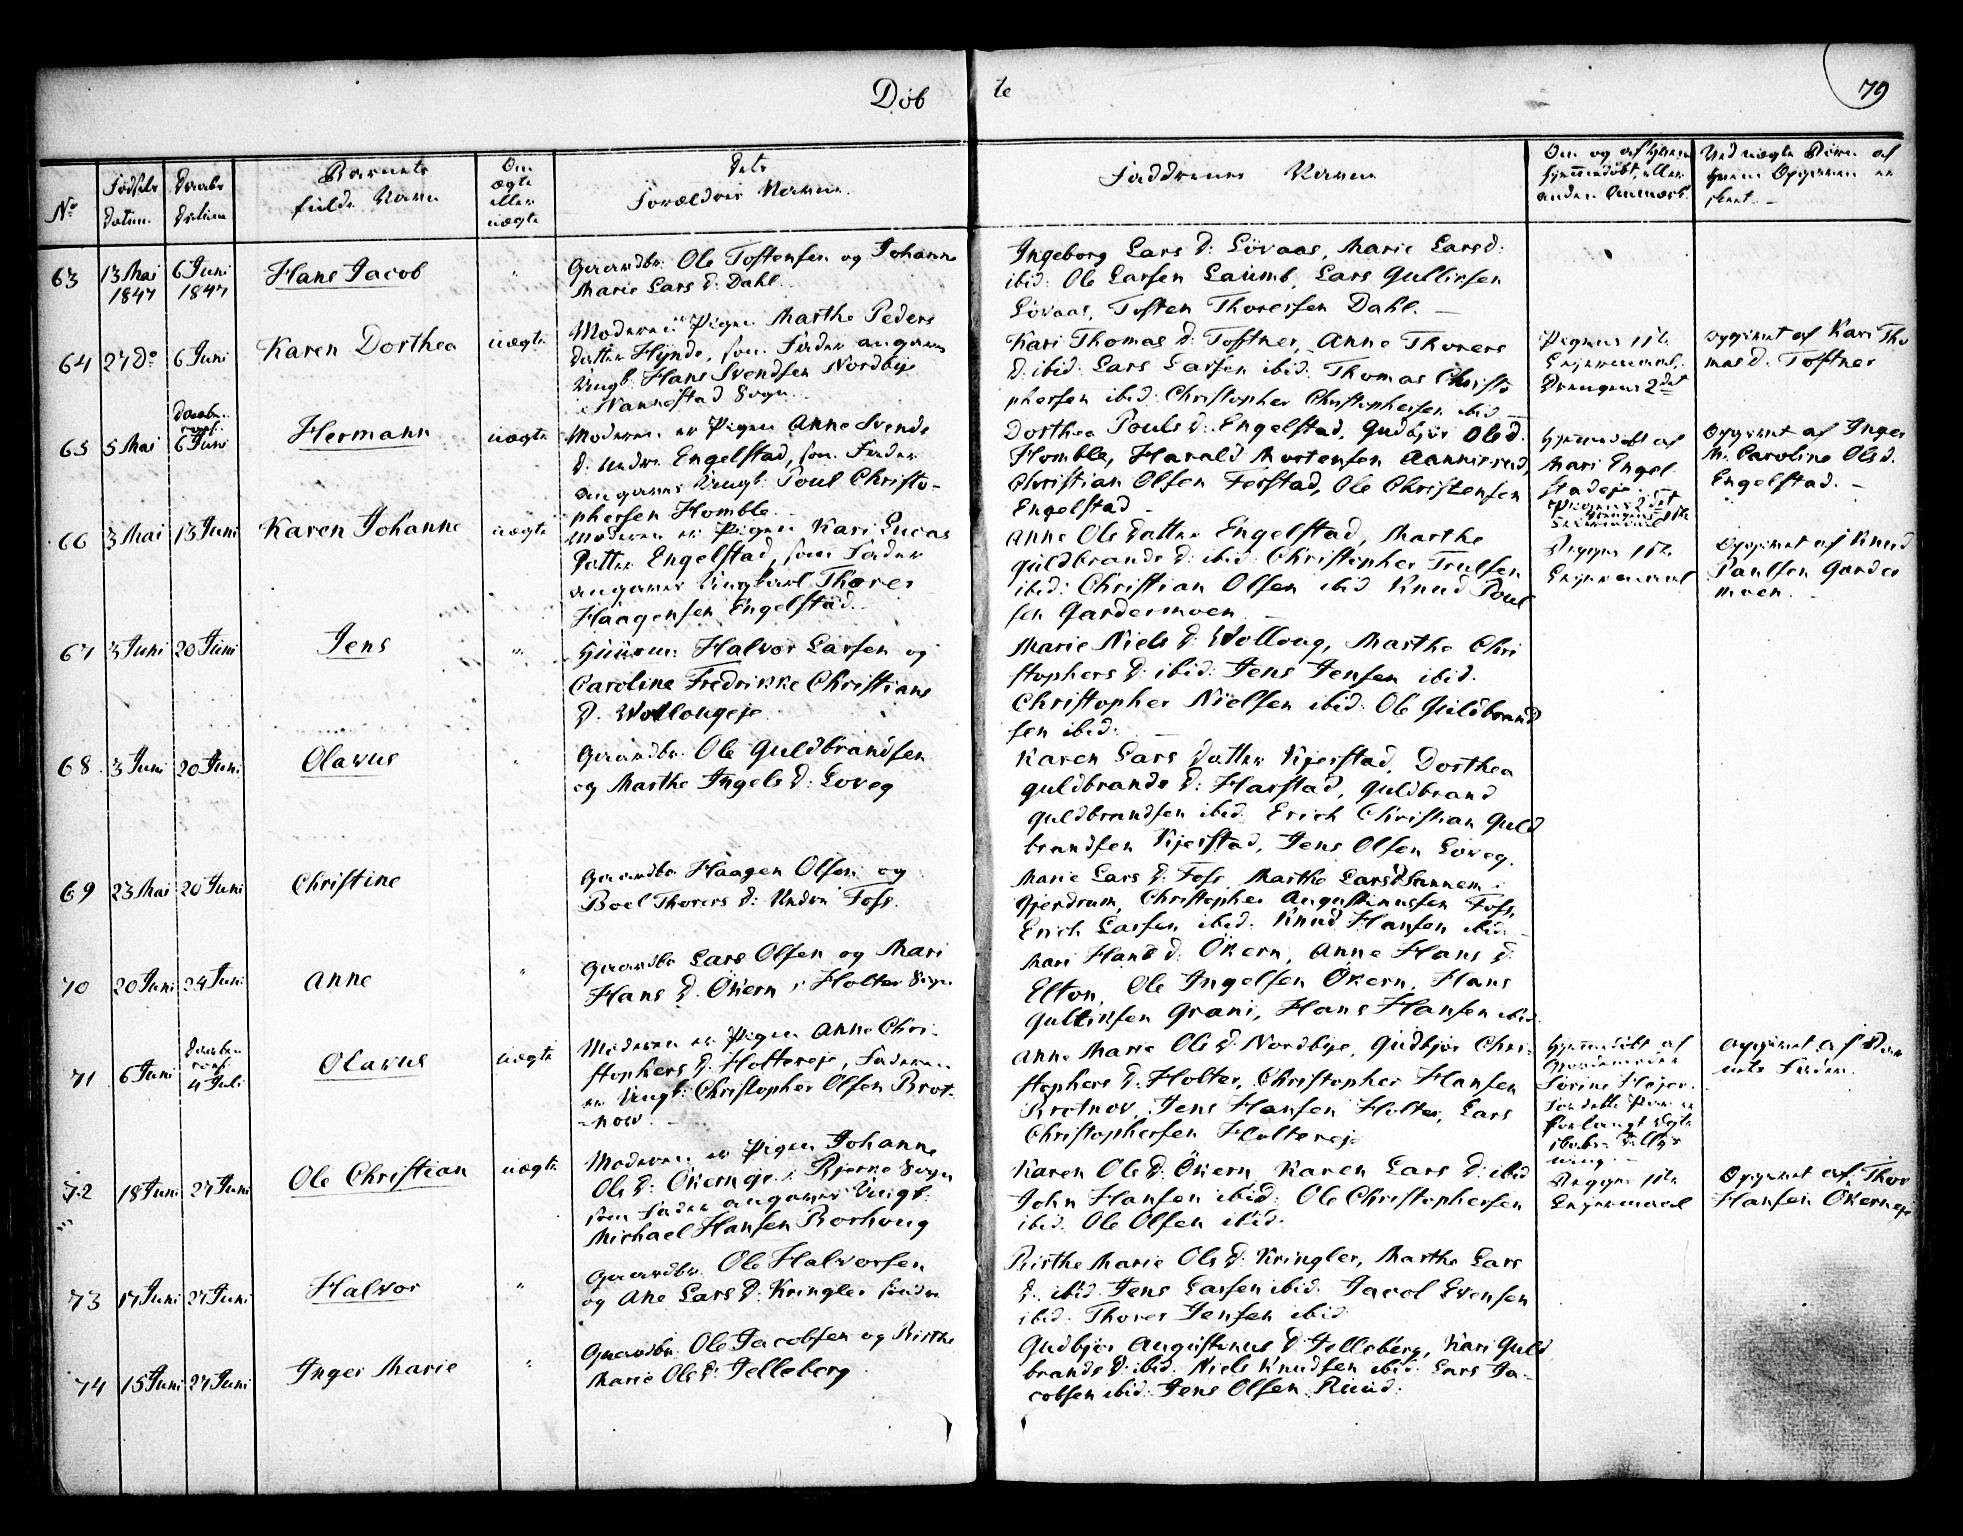 Døb te 79
No
Fødsels Datum.
Daabs Datum
Barnets fulde Navn
Om ægte eller uægte
Dets Forældres Navne.
Faddernes Navne
63 13 Mai 1847 6 Juni 1847 Hans Jacob " Gaardbr: Ole Tostensen og Johanne
Marie Lars D: Dahl
Ingeborg Lars D: Løvaas, Marie Larsd:
ibid: Ole Larsen Laumb, Lars Gulliksen
Løvaas, Tosten Thoresen Dahl. —
64 27 Do 6 Juni Karen Dorthea uægte Moderen er Pigen Marthe Peders
datter Hynde, som Fader angaves
Ungk: Hans Svendsen Nordbye
i Nannestad Sogn
Kari Thomas D: Toftner, Anne Thorers
D: ibid: Lars Larsen ibid: Thomas Christo
phersen ibid: Christopher Christophersen ibid —
Pigens 1ste
Leiermaal,
Drengens 2det
opgivet af Kari Tho
mas D. Toftner
65 5 Mai 6 Juni Hermann uægte Moderen er Pigen Anne Svends
D: Engelstad, som Fader
angaves Ungk: Poul Christo-
phersen Homble
Dorthea Pouls D: Engelstad, Gudbjør Ole d.
Homble, Harald Mortensen
Christian Olsen Ferstad, Ole Christensen
Engelstad
Hjemmedøbt af
Mari Engel
stadeje
Opgivet af Inger
M. Caroline Olsd.
Engelstad. —
66 3 Mai 13 Juni Karen Johanne uægte Moderen er Pigen Kari Lucas
Datter Engelstad, som Fader
angaves Ungkarl Thorer
Haagensen Engelstad.
Anne Ole Datter Engelstad, Marthe
Guldbrands D: ibid: Christopher Trulsen
ibid: Christian Olsen ibid Knud Poul
sen Gardermoen —
Begges 1ste
Leiermaal
Opgivet af Knud
Paulsen Garder
moen
67 3 Juni 20 Juni Jens " Huusm: Halvor Larsen og
Caroline Fredrikke Christians
D: Wollougeje
Marie Niels D: Wolloug, Marthe Chri
stophers D: ibid: Jens Jensen ibid.
Christopher Nielsen ibid: Ole Guldbrand
sen ibid: —
68 3 Juni 20 Juni Olavus " Gaardbr: Ole Guldbrandsen
og Marthe Ingels D: Loveg
Karen Lars Datter Kjerstad, Dorthea
Guldbrands D: Harstad, Guldbrand
Guldbrandsen ibid. Erich Christian Guld
brandsen Kjerstad, Jens Olsen Loveg.
69 23 Mai 20 Juni Christine Gaardbr Haagen Olsen og
Boel Thorers D: Foss.
Marie Lars D: Foss, Marthe Lars D
Gjerdrum, Christopher Augustinussen Foss,
Erich Larsen ibid: Knud Hansen ibid. —
70 20 Juni 24 Juni Anne " Gaardbr Lars Olsen og Mari
Hans D. Økern i Holter Sogn
Mari Hans d: Økern, Anne Hans D
Elton, Ole Ingelsen Økern, Hans
Gulliksen Grani, Hans Hansen ibid.
71 6 Juni 4 Juli Olavus uægte Moderen er Pigen Anne Chri-
stophers D: Holtereje, Faderen
er Ungk: Christopher Olsen Brot-
now. —
Anne Marie Ole D. Nordbye, Gudbjør Chri-
stophers D: Holter, Christopher Hansen
Brotnov, Jens Hansen Holter, Lars
Christophersen Holtereje
Hjemmedøbt af
Gjordemoder
opgivet af Bar
nets Fader
72 18 Juni 27 Juni Ole Christian uægte Moderen er Pigen Johanne
Ole D: Økernejе i Bjerke Sogn
som Fader angaves Ungk:
Michael Hansen Borhoug
Karen Ole D: Økern, Karen Lars D: ibid
John Hansen ibid: Ole Christophersen
ibid. Ole Olsen ibid:
Begges 1ste
Leiermaal
Opgivet af Thor
Hansen Økerneje
73 17 Juni 27 Juni Halvor " Gaardbr. Ole Halvorsen
og Ane Lars D: Kringler søndre
Birthe Marie Ole D: Kringler, Marthe Lars
D. ibid Jens Larsen ibid. Jacob Evensen
ibid: Thorer Jensen ibid
74 15 Juni 27 Juni Inger Marie " Gaardbr. Ole Jacobsen og Birthe
Marie Ole D: Jelleberg
Gudbjør Augustinus D: Jelleberg, Kari Guld
brands D: ibid. Niels Knudsen ibid: Lars Ja-
cobsen ibid: Jens Olsen Ruud.